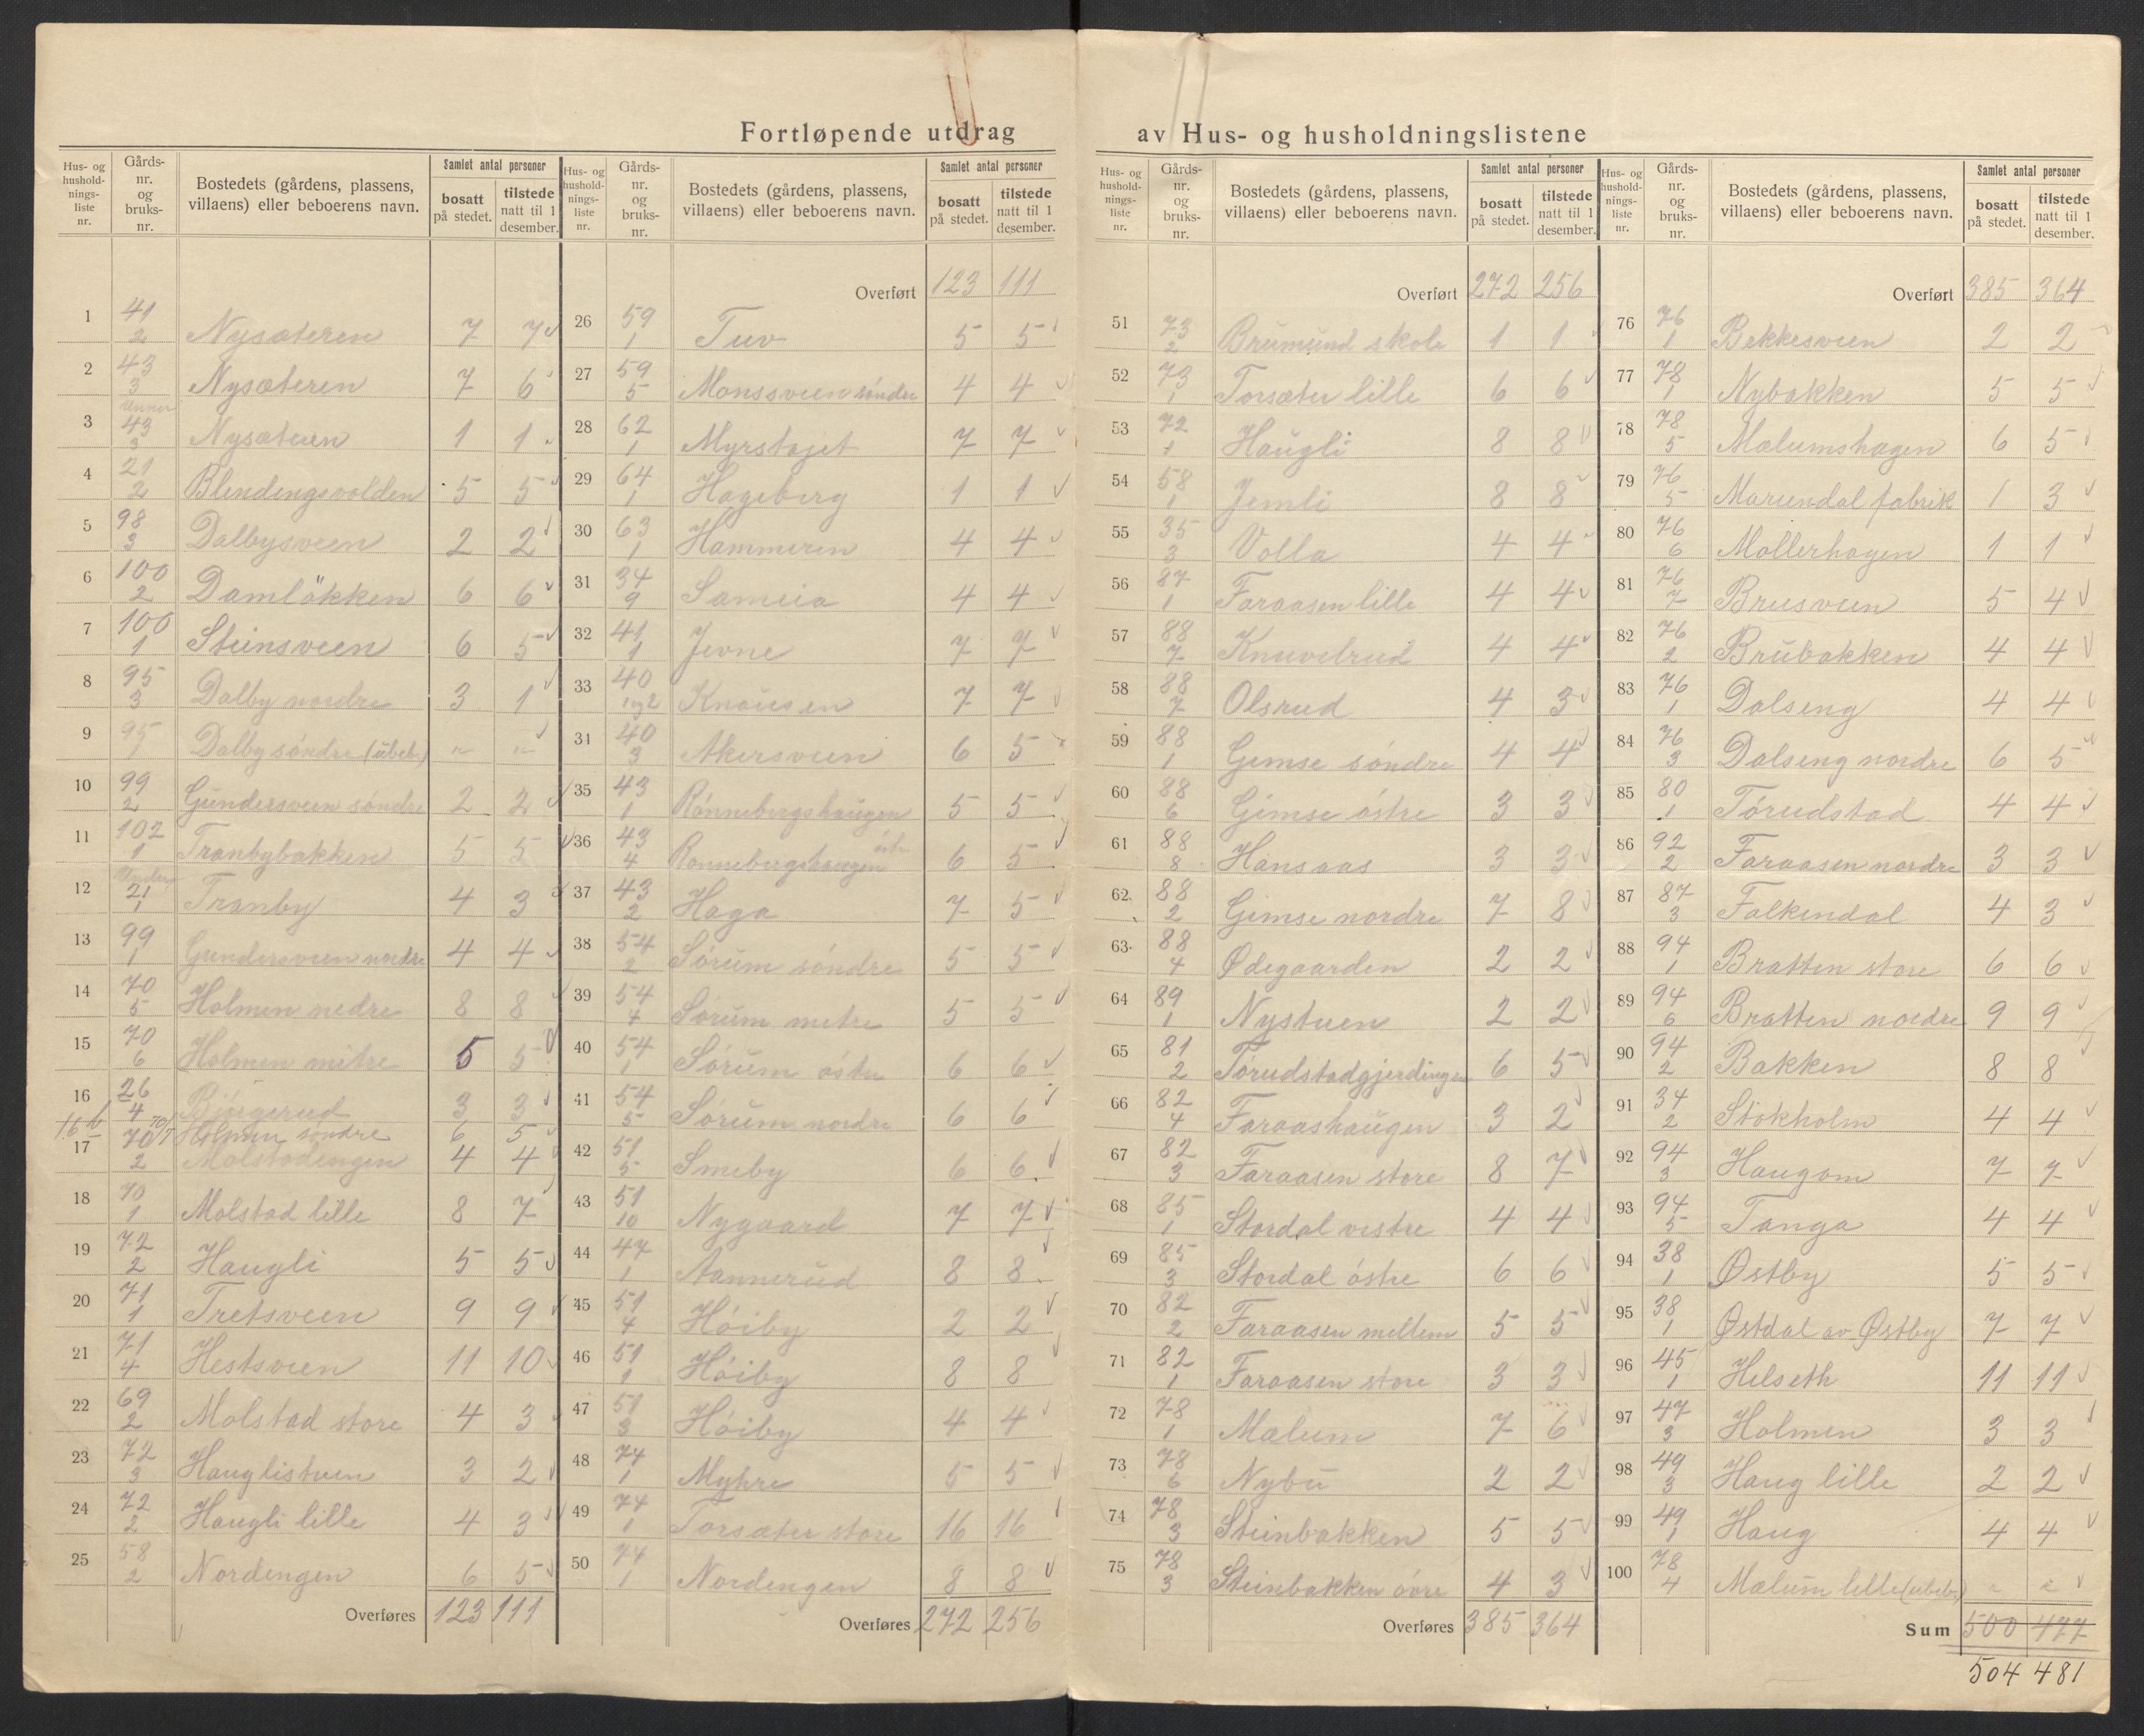 Fortløpende utdrag av Hus- og husholdningslistene
Hus- og husholdnings-liste nr. Gårds-nr. og bruks-nr. Bostedets (gårdens, plassens, villaens) eller beboerens navn. Samlet antal personer bosatt på stedet. tilstede natt til 1 desember.
1 41/2 Nysæteren 7 7
2 43/3 Nysæteren 7 6
3 43/3 Nysæteren 1 1
4 21/2 Blendengsvolden 5 5
5 98/3 Dalbysveen 2 2
6 100/2 Damlökken 6 6
7 100/1 Steinsveen 6 5
8 95/3 Dalby nordre 3 1
9 95/1 Dalby søndre (ubeb.) " "
10 99/2 Gundersveen søndre 2 2
11 102/1 Tranbybakken 5 5
12 21/1 Tranby 4 3
13 99/1 Gundersveen nordre 4 4
14 70/5 Holmen nedre 8 8
15 70/6 Holmen mitre 5 5
16 26/4 Bjørgerud 3 3
16b 70/7 Holmen søndre 6 5
17 70/2 Molstadengen 4 4
18 70/1 Molstad lille 8 7
19 72/2 Haugli 5 5
20 71/1 Tretsveen 9 9
21 71/4 Hestsveen 11 10
22 69/2 Molstad store 4 3
23 72/3 Hauglistuen 3 2
24 72/2 Haugli lille 4 3
25 58/2 Nordengen 6 5
Overføres 123 111
Hus- og husholdnings-liste nr. Gårds-nr. og bruks-nr. Bostedets (gårdens, plassens, villaens) eller beboerens navn. Samlet antal personer bosatt på stedet. tilstede natt til 1 desember.
Overført 123 111
26 59/1 Tuv 5 5
27 59/5 Monssveen søndre 4 4
28 62/1 Myrstajet 7 7
29 64/1 Hageberg 1 1
30 63/1 Hammeren 4 4
31 34/9 Sameia 4 4
32 41/1 Jevne 7 7
33 40/1 og 2 Knausen 7 7
31 40/3 Akersveen 6 5
35 43/1 Rønnebergshaugen 5 5
36 43/4 Rønnebergshaugen østre 6 5
37 43/2 Haga 7 5
38 54/2 Sørum søndre 5 5
39 54/4 Sørum metre 5 5
40 54/1 Sørum østre 6 6
41 54/5 Sørum nordre 6 6
42 51/5 Smeby 6 6
43 51/10 Nygaard 7 7
44 47/1 Aannerud 8 8
45 51/4 Høiby 2 2
46 51/1 Høiby 8 8
47 51/3 Høiby 4 4
48 74/1 Myhre 5 5
49 74/1 Torsæter store 16 16
50 74/1 Nordengen 8 8
Overføres 272 256
Hus- og husholdnings-liste nr. Gårds-nr. og bruks-nr. Bostedets (gårdens, plassens, villaens) eller beboerens navn. Samlet antal personer bosatt på stedet. tilstede natt til 1 desember.
Overført 272 256
51 73/2 Brumund skole 1 1
52 73/1 Torsæter lille 6 6
53 72/1 Haugli 8 8
54 58/1 Jemli 8 8
55 35/3 Volla 4 4
56 87/1 Faraasen lille 4 4
57 88/7 Knuvelrud 4 4
58 88/7 Olsrud 4 3
59 88/1 Gimse søndre 4 4
60 88/6 Gimse østre 3 3
61 88/8 Hansaas 3 3
62 88/2 Gimse nordre 7 8
63 88/4 Ødegaarden 2 2
64 89/1 Nystuen 2 2
65 81/2 Tørudstadgjerdingen 6 5
66 82/4 Faraashaugen 3 2
67 82/3 Faraasen store 8 7
68 85/1 Stordal vestre 4 4
69 85/3 Stordal østre 6 6
70 82/2 Faraasen mellem 5 5
71 82/1 Faraasen store 3 3
72 78/1 Mælum 7 6
73 78/6 Nybu 2 2
74 78/3 Steinbakken 5 5
75 78/3 Steinbakken øvre 4 3
Overføres 385 364
Hus- og husholdnings-liste nr. Gårds-nr. og bruks-nr. Bostedets (gårdens, plassens, villaens) eller beboerens navn. Samlet antal personer bosatt på stedet. tilstede natt til 1 desember.
Overført 385 364
76 76/1 Bekkesveen 2 2
77 78/1 Nybakken 5 5
78 78/5 Mælumshagen 6 5
79 76/5 Mariendal fabrik 1 3
80 76/6 Møllerhagen 1 1
81 76/7 Brusveen 5 4
82 76/2 Brubakken 4 4
83 76/1 Dalseng 4 4
84 76/3 Dalseng nordre 6 5
85 80/1 Tørudstad 4 4
86 92/2 Faraasen nordre 3 3
87 87/3 Falkendal 4 3
88 94/1 Bratten store 6 6
89 94/6 Bratten nordre 9 9
90 94/2 Bakken 8 8
91 34/2 Stokholm 4 4
92 94/3 Haugom 7 7
93 94/5 Tanga 4 4
94 38/1 Østby 5 5
95 38/1 Østdal av Østby 7 7
96 45/1 Helseth 11 11
97 47/3 Holmen 3 3
98 49/3 Haug lille 2 2
99 49/1 Haug 4 4
100 78/4 Mælum lille (ubeb.) " "
Sum 500 477
504 481